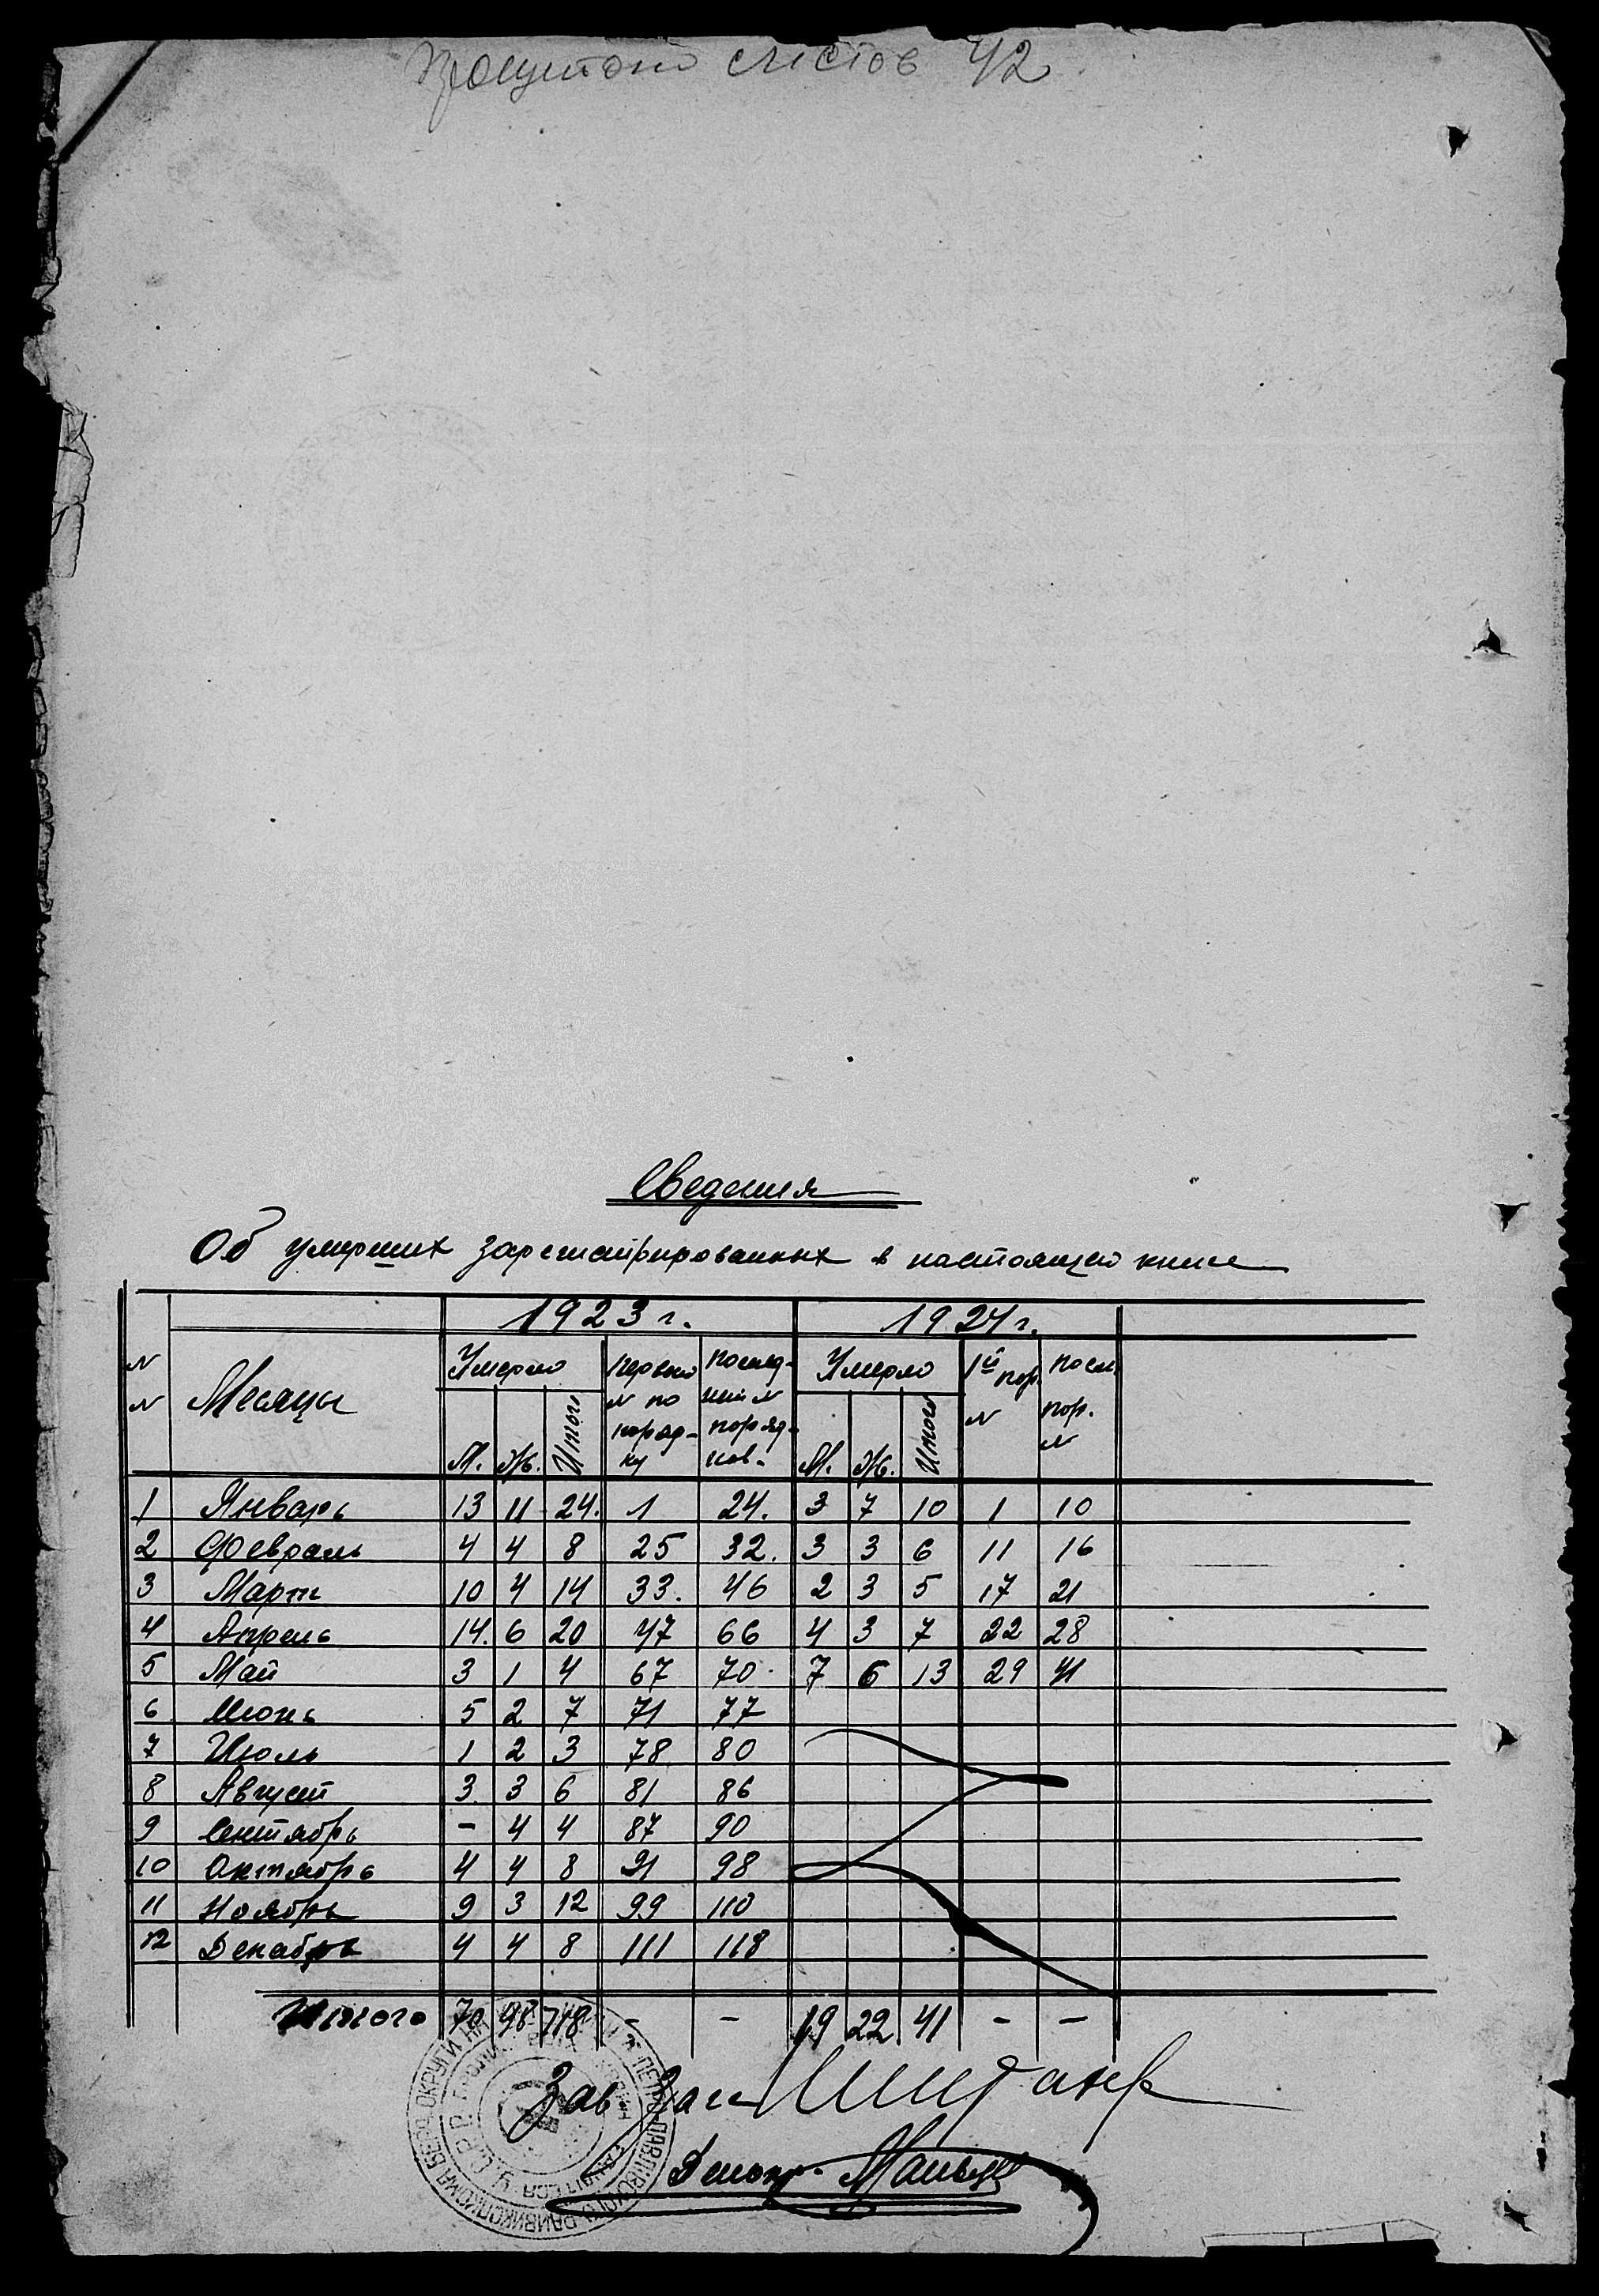 листов 42
Сведения
Об умерших зарегистрированных в настоящей книге
1923 г. 1924 г.
N N Месяцы Умерло Первый N по поряд-ку Послед-ний N поряд-ков. Умерло 1й пор. N посл. пор. N
М. Ж. Итого М. Ж. Итого
1 Январь 13 11 24. 1 24. 3 7 10 1 10
2 Февраль 4 4 8 25 32. 3 3 6 11 16
3 Март 10 4 14 33. 46 2 3 5 17 21
4 Апрель 14. 6 20 47 66 4 3 7 22 28
5 Май 3 1 4 67 70. 7 6 13 29 41
6 Июнь 5 2 7 71 77
7 Июль 1 2 3 78 80
8 Август 3. 3 6 81 86
9 Сентябрь – 4 4 87 90
10 Октябрь 4 4 8 91 98
11 Ноябрь 9 3 12 99 110
12 Декабрь 4 4 8 111 118
Итого 70 48 118 – – 19 22. 41 – –
Зав.
Делопр.